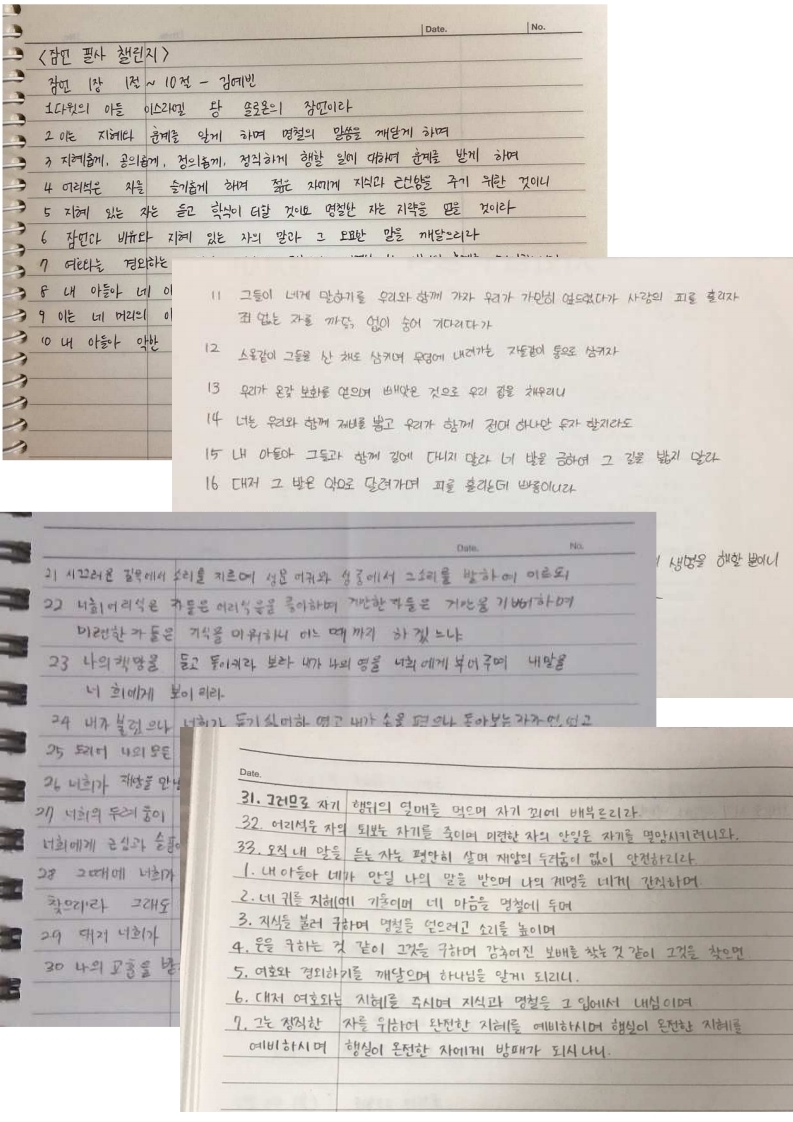 Date.
No.
<잠언 필사 챌린지>
잠언 1장 1절 ~ 10절 - 김예빈
1 다윗의 아들 이스라엘 왕 솔로몬의 잠언이라
2 이는 지혜와 훈계를 알게 하며 명철의 말씀을 깨닫게 하며
3 지혜롭게, 공의롭게, 정의롭게, 정직하게 행할 일에 대하여 훈계를 받게 하며
4 어리석은 자를 슬기롭게 하며 젊은 자에게 지식과 근신함을 주기 위한 것이니
5 지혜 있는 자는 듣고 학식이 더할 것이요 명철한 자는 지략을 얻을 것이라
6 잠언과 비유와 지혜 있는 자의 말과 그 오묘한 말을 깨달으리라
7 여호와를 경외하는
8 내 아들아 네 아
9 이는 네 머리의 아
10 내 아들아 악한
11 그들이 네게 말하기를 우리와 함께 가자 우리가 가만히 엎드렸다가 사람의 피를 흘리자
죄 없는 자를 까닭 없이 숨어 기다리다가
12 스올같이 그들을 산 채로 삼키며 무덤에 내려가는 자들같이 통으로 삼키자
13 우리가 온갖 보화를 얻으며 빼앗은 것으로 우리 집을 채우리니
14 너는 우리와 함께 제비를 뽑고 우리가 함께 전대 하나만 두자 할지라도
15 내 아들아 그들과 함께 길에 다니지 말라 네 발을 금하여 그 길을 밟지 말라
16 대저 그 발은 악으로 달려가며 피를 흘리는데 빠름이니라
생명을 해할 뿐이니
Date.
No.
21 시끄러운 길목에서 소리를 지르며 성문 어귀와 성중에서 그 소리를 발하여 이르되
22 너희 어리석은 자들은 어리석음을 좋아하며 거만한 자들은 거만을 기뻐하며
미련한 자들은 지식을 미워하니 어느 때까지 하겠느냐
23 나의 책망을 듣고 돌이키라 보라 내가 나의 영을 너희에게 부어 주며 내 말을
너희에게 보이리라
24 내가 불렀으나 너희가 듣기 싫어하였고 내가 손을 폈으나 돌아보는 자가 없었고
25 도리어 나의 모든
26 너희가 재앙을 만
27 너희의 두려움이
너희에게 근심과 슬픔
28 그때에 너희가
찾으리라 그래도
29 대저 너희가
30 나의 교훈을 받
Date.
31. 그러므로 자기 행위의 열매를 먹으며 자기 꾀에 배부르리라
32. 어리석은 자의 퇴보는 자기를 죽이며 미련한 자의 안일은 자기를 멸망시키려니와.
33. 오직 내 말을 듣는 자는 평안히 살며 재앙의 두려움이 없이 안전하리라
1. 내 아들아 네가 만일 나의 말을 받으며 나의 계명을 네게 간직하며.
2. 네 귀를 지혜에 기울이며 네 마음을 명철에 두며
3. 지식을 불러 구하며 명철을 얻으려고 소리를 높이며
4. 은을 구하는 것 같이 그것을 구하며 감추어진 보배를 찾는 것 같이 그것을 찾으면
5. 여호와 경외하기를 깨달으며 하나님을 알게 되리니.
6. 대저 여호와는 지혜를 주시며 지식과 명철을 그 입에서 내심이며
7. 그는 정직한 자를 위하여 완전한 지혜를 예비하시며 행실이 온전한 지혜를
예비하시며 행실이 온전한 자에게 방패가 되시나니.